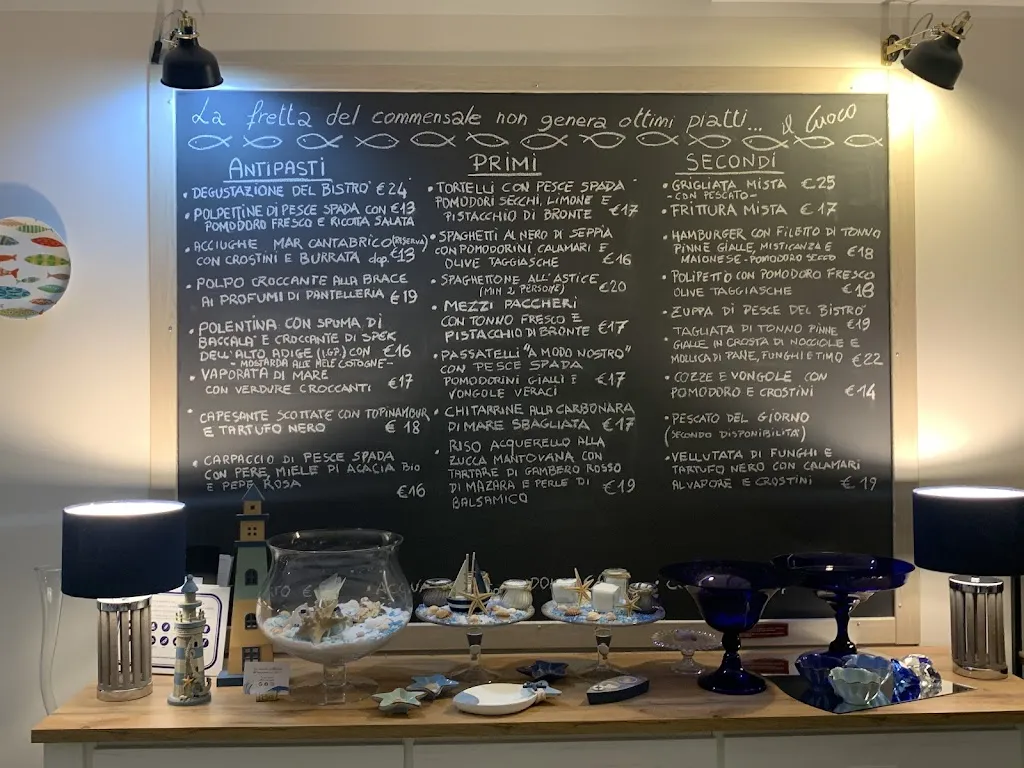 La fretta del commensale non genera ottimi piatti... il Cuoco
ANTIPASTI
• DEGUSTAZIONE DEL BISTRO' €24
• POLPETTINE DI PESCE SPADA CON €13
POMODORO FRESCO E RICOTTA SALATA
• ACCIUGHE MAR CANTABRICO (RISERVA)
CON CROSTINI E BURRATA dop €13
• POLPO CROCCANTE ALLA BRACE
AI PROFUMI DI PANTELLERIA €19
• POLENTINA CON SPUMA DI
BACCALA' E CROCCANTE DI SPEK
DELL'ALTO ADIGE (I.G.P.) CON €16
- MOSTARDA ALLE MELE COTOGNE -
• VAPORATA DI MARE
CON VERDURE CROCCANTI €17
• CAPESANTE SCOTTATE CON TOPINAMBUR
E TARTUFO NERO € 18
• CARPACCIO DI PESCE SPADA
CON PERE, MIELE DI ACACIA Bio
E PEPE ROSA €16
PRIMI
• TORTELLI CON PESCE SPADA
POMODORI SECCHI, LIMONE E
PISTACCHIO DI BRONTE €17
• SPAGHETTI AL NERO DI SEPPIA
CON POMODORINI, CALAMARI E
OLIVE TAGGIASCHE €16
• SPAGHETTONE ALL'ASTICE
(MIN 2 PERSONE) €20
• MEZZI PACCHERI
CON TONNO FRESCO E
PISTACCHIO DI BRONTE €17
• PASSATELLI "A MODO NOSTRO"
CON PESCE SPADA
POMODORINI GIALLI E €17
VONGOLE VERACI
• CHITARRINE ALLA CARBONARA
DI MARE SBAGLIATA €17
• RISO ACQUERELLO ALLA
ZUCCA MANTOVANA CON
TARTARE DI GAMBERO ROSSO
DI MAZARA E PERLE DI €19
BALSAMICO
SECONDI
• GRIGLIATA MISTA €25
- CON PESCATO -
• FRITTURA MISTA € 17
• HAMBURGER CON FILETTO DI TONNO
PINNE GIALLE, MISTICANZA E
MAIONESE - POMODORO SECCO €18
• POLIPETTO CON POMODORO FRESCO
OLIVE TAGGIASCHE €18
• ZUPPA DI PESCE DEL BISTRO'
€19
• TAGLIATA DI TONNO PINNE
GIALLE IN CROSTA DI NOCCIOLE E
MOLLICA DI PANE, FUNGHI E TIMO €22
• COZZE E VONGOLE CON
POMODORO E CROSTINI €14
• PESCATO DEL GIORNO
(SECONDO DISPONIBILITA')
• VELLUTATA DI FUNGHI E
TARTUFO NERO CON CALAMARI
ALVAPORE E CROSTINI € 19